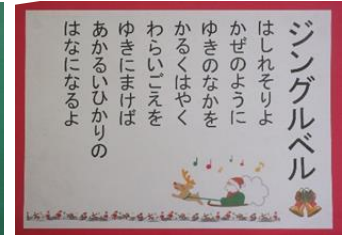 ジングルベル
はしれそりよ
かぜのように
ゆきのなかを
かるくはやく
わらいごえを
ゆきにまけば
あかるいひかりの
はなになるよ